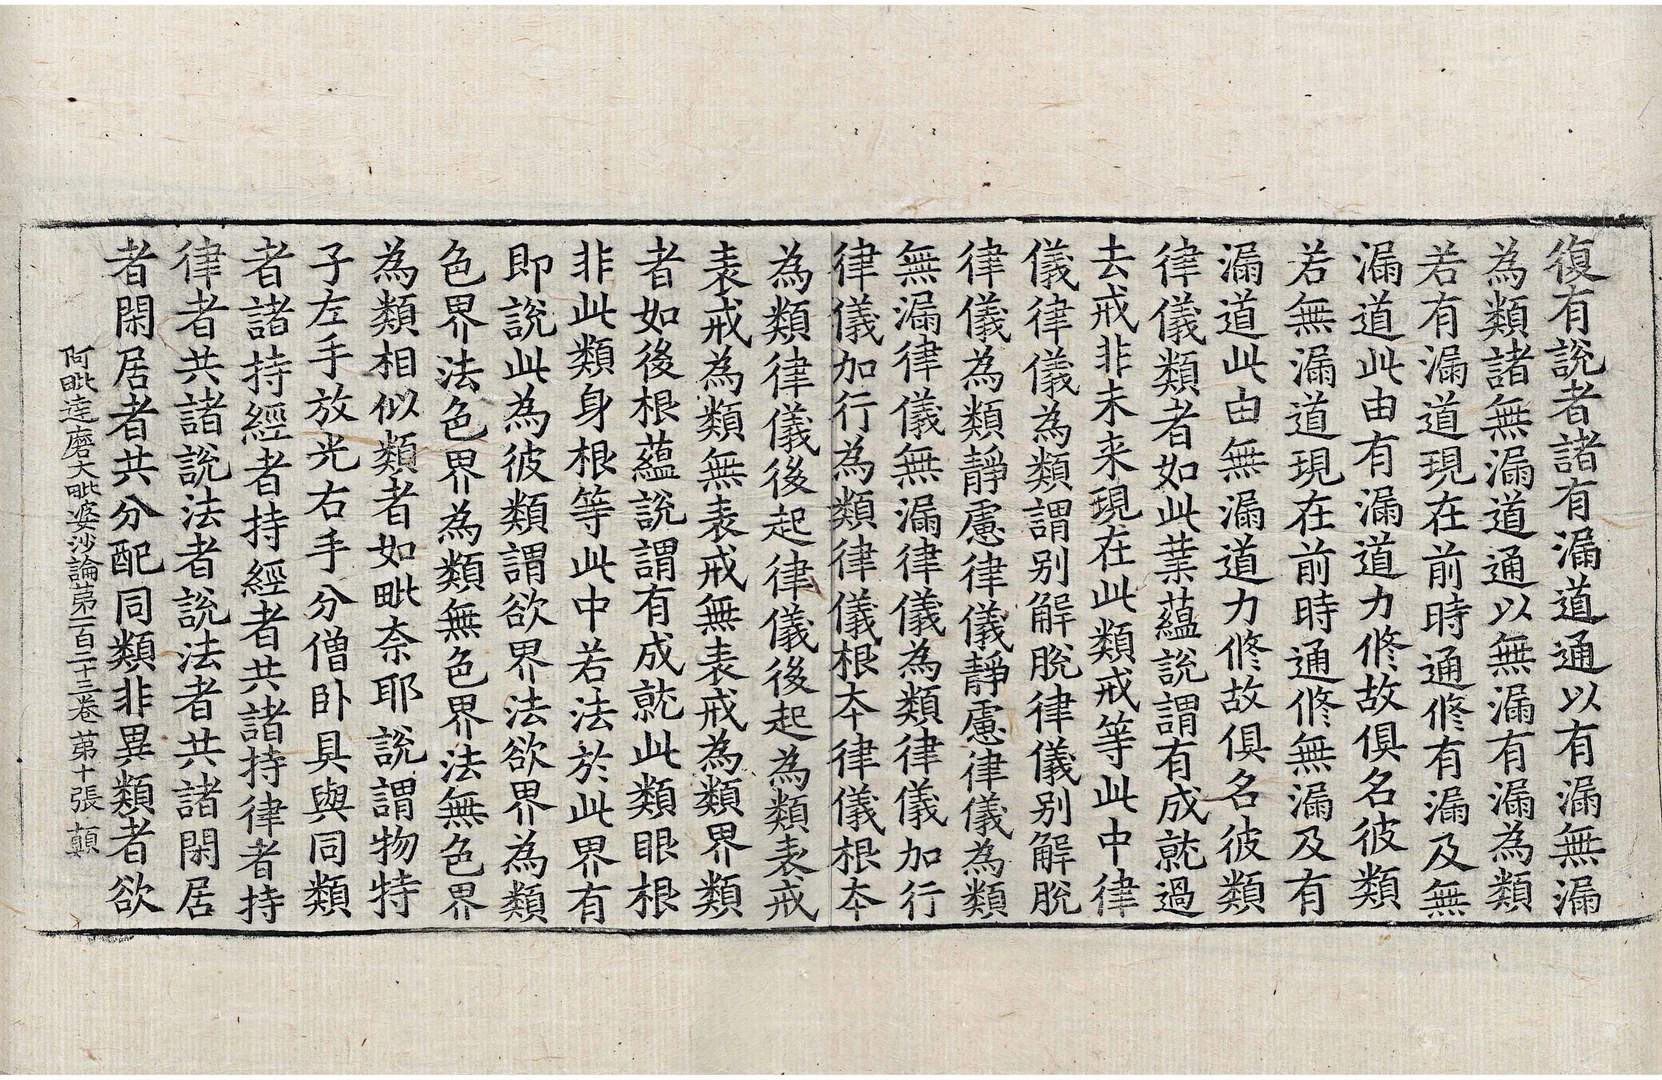 復有說者諸有漏道通以有漏無漏
為類諸無漏道通以無漏有漏為類
若有漏道現在前時通修有漏及無
漏道此由有漏道力修故俱名彼類
若無漏道現在前時通修無漏及有
漏道此由無漏道力修故俱名彼類
律儀類者如此葉蘊說謂有成就過
去戒非未来現在此類戒等此中律
儀律儀為類謂别解脫律儀别解脫
律儀為類靜慮律儀靜慮律儀為類
無漏律儀無漏律儀為類律儀加行
律儀加行為類律儀根本律儀根本
為類律儀後起律儀後起為類表戒
表戒為類無表戒無表戒為類界類
者如後根蘊說謂有成就此類眼根
非此類身根等此中若法於此界有
即說此為彼類謂欲界法欲界為類
色界法色界為類無色界法無色界
為類相似類者如毗奈耶說謂物特
子左手放光右手分僧卧具與同類
者諸持經者持經者共諸持律者持
律者共諸說法者說法者共諸閑居
者閑居者共分配同類非異類者欲
阿毗達磨大毗婆沙論第一百二十三卷 第十張 顛